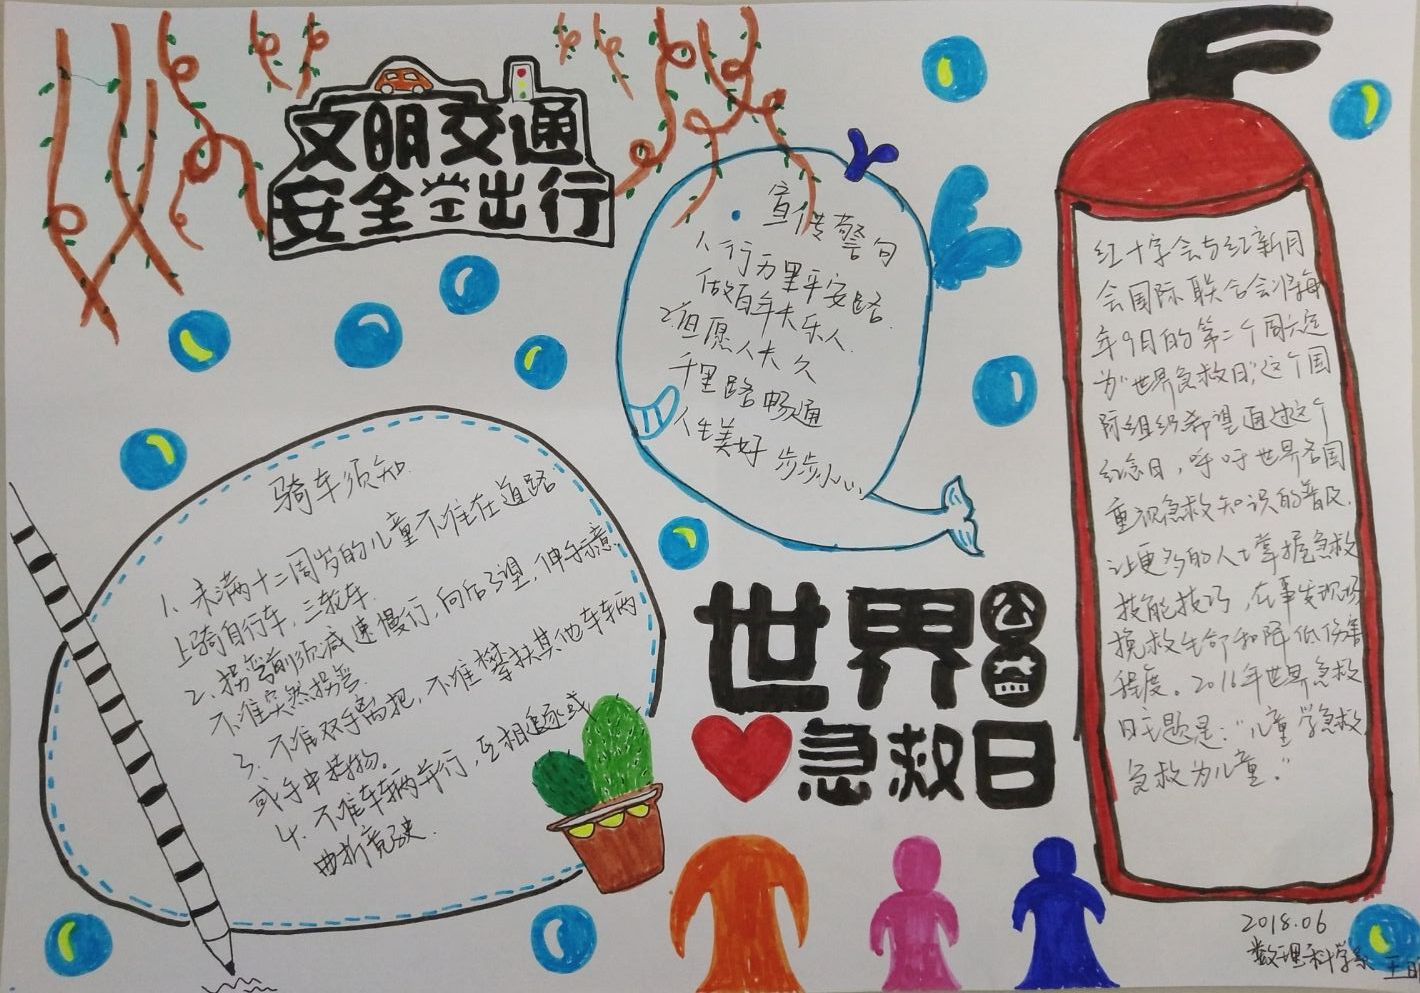 文明交通
安全出行
宣传警句
1、行万里平安路
做百年大乐人.
2、但愿人长久
千里路畅通
人生美好 步步小心
红十字会与红新月
会国际联合会将每
年9月的第二个周六定
为“世界急救日”,这个国
际组织希望通过这个
纪念日，呼吁世界各国
重视急救知识的普及.
让更多的人士掌握急救
技能技巧，在事发现场
挽救生命和降低伤害
程度。2016年世界急救
日主题是：“儿童学急救,
急救为儿童。”
骑车须知.
1、未满十二周岁的儿童不准在道路
上骑自行车，三轮车.
2、拐弯前须减速慢行，向后了望，伸手示意.
不准突然拐弯.
3、不准双手离把，不准攀扶其他车辆
或手中持物。
4、不准车辆并行，互相追逐或
曲折竞驶.
世界公益
急救日
2018.06
数理科学系 王